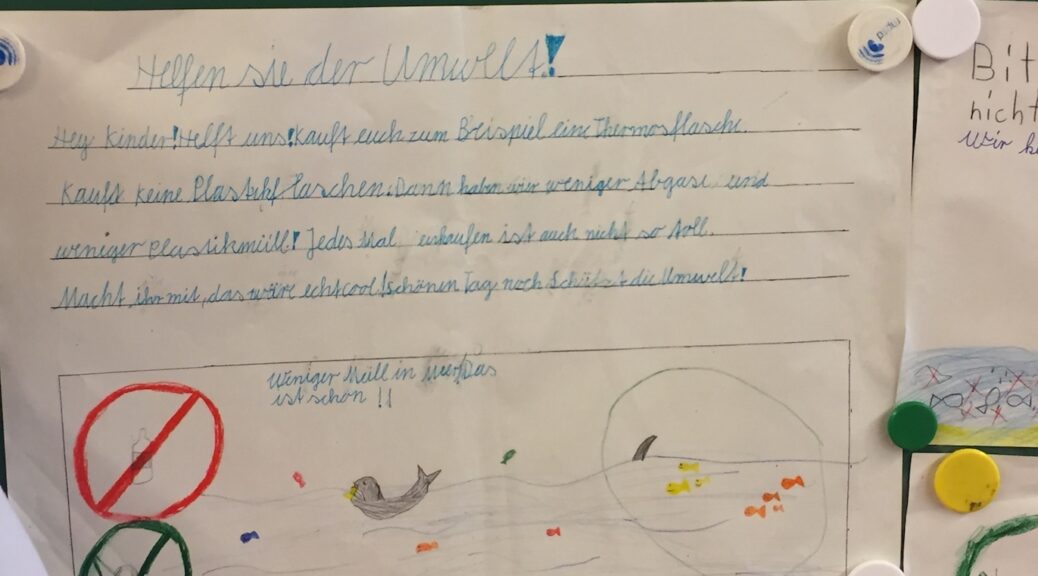 Helfen sie der Umwelt!
Hey Kinder! Helft uns! Kauft euch zum Beispiel eine Thermosflasche.
Kauft keine Plastikflaschen. Dann haben wir weniger Abgase und
weniger Plastikmüll! Jedes Mal einkaufen ist auch nicht so toll.
Macht ihr mit, das wäre echt cool! Schönen Tag noch Schützt die Umwelt!
Weniger Müll in Meer! Das
ist schön !!
Bit
nicht
Wir